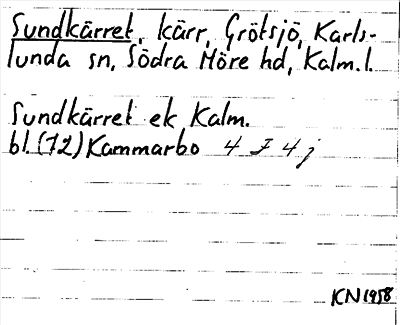 Sundkärret, kärr, Grötsjö, Karls-
lunda sn, Södra Möre hd, Kalm. l.
Sundkärret ek Kalm.
bl. (72) Kammarbo 4 F 4 j
KN 1958